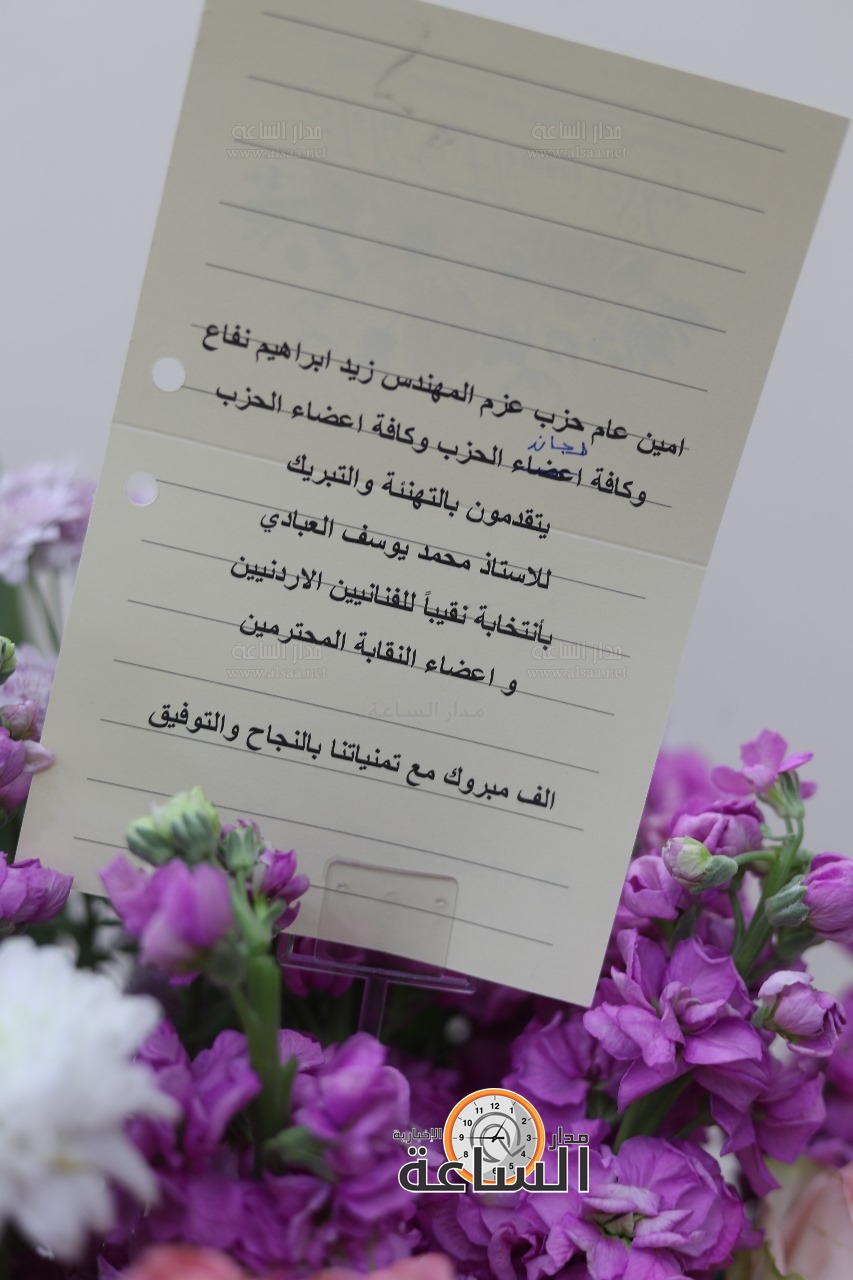 مدار الساعة
www.alsaa.net
مدار الساعة
www.alsaa.net
امين عام حزب عزم المهندس زيد ابراهيم نفاع
لجان
وكافة اعضاء الحزب وكافة اعضاء الحزب
يتقدمون بالتهنئة والتبريك
للاستاذ محمد يوسف العبادي
بأنتخابة نقيباً للفنانيين الاردنيين
و اعضاء النقابة المحترمين
مدار الساعة
www.alsaa.net
مدار الساعة
www.alsaa.net
مدار الساعة
الف مبروك مع تمنياتنا بالنجاح والتوفيق
مدار الساعة الإخبارية
12 1 2 3 4 5 6 8 9 10 11